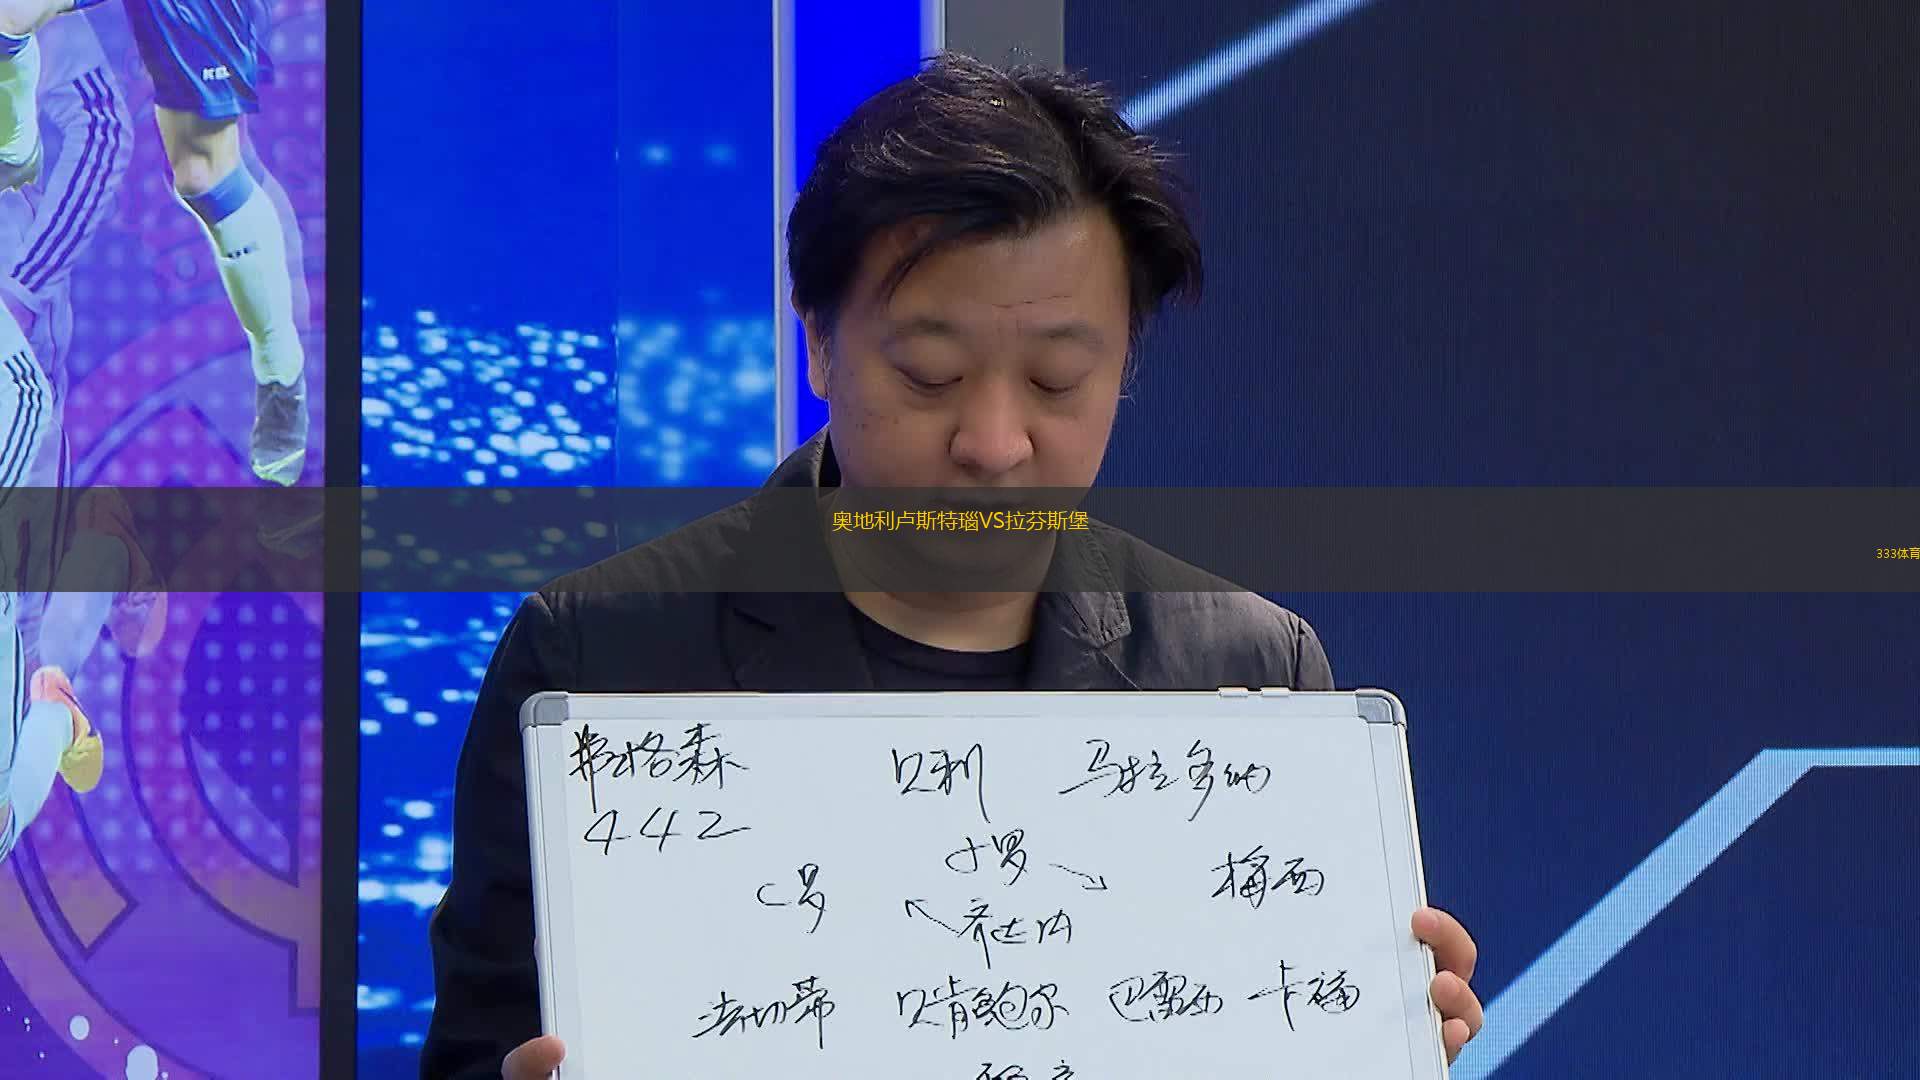 KEL
奥地利卢斯特瑙VS拉芬斯堡
333体育
弗格森 贝利 马拉多纳
442
小罗
C罗 梅西
齐达内
法切蒂 贝肯鲍尔 巴雷西 卡福